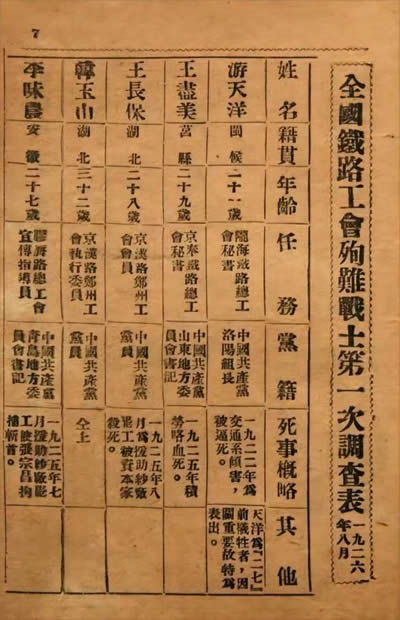 7
全國鐵路工會殉難戰士第一次調查表
一九二六
年八月
姓名
籍貫
年齡
任務
黨籍
死事概略
其他
游天洋
閩候
二十一歲
隴海鐵路總工
會秘書
中國共產黨
洛陽組長
一九二二年為
交通系傾害，
被逼死。
天洋為『二七』
前犧牲者，因
關重要故特為
表出。
王盡美
莒縣
二十九歲
京奉鐵路總工
會秘書
中國共產黨
山東地方委
員會書記
一九二五年積
勞咯血死。
王長保
湖北
二十八歲
京漢路鄭州工
會會員
中國共產黨
黨員
一九二五年八
月為援助紗廠
罷工被資本家
殺死。
韓玉山
湖北
三十二歲
京漢路鄭州工
會執行委員
中國共產黨
黨員
仝上
李味農
安徽
二十七歲
膠濟路總工會
宣傳指導員
中國共產黨
青島地方委
員會書記
一九二五年七
月援助紗廠罷
工被張宗昌拘
捕斬首。